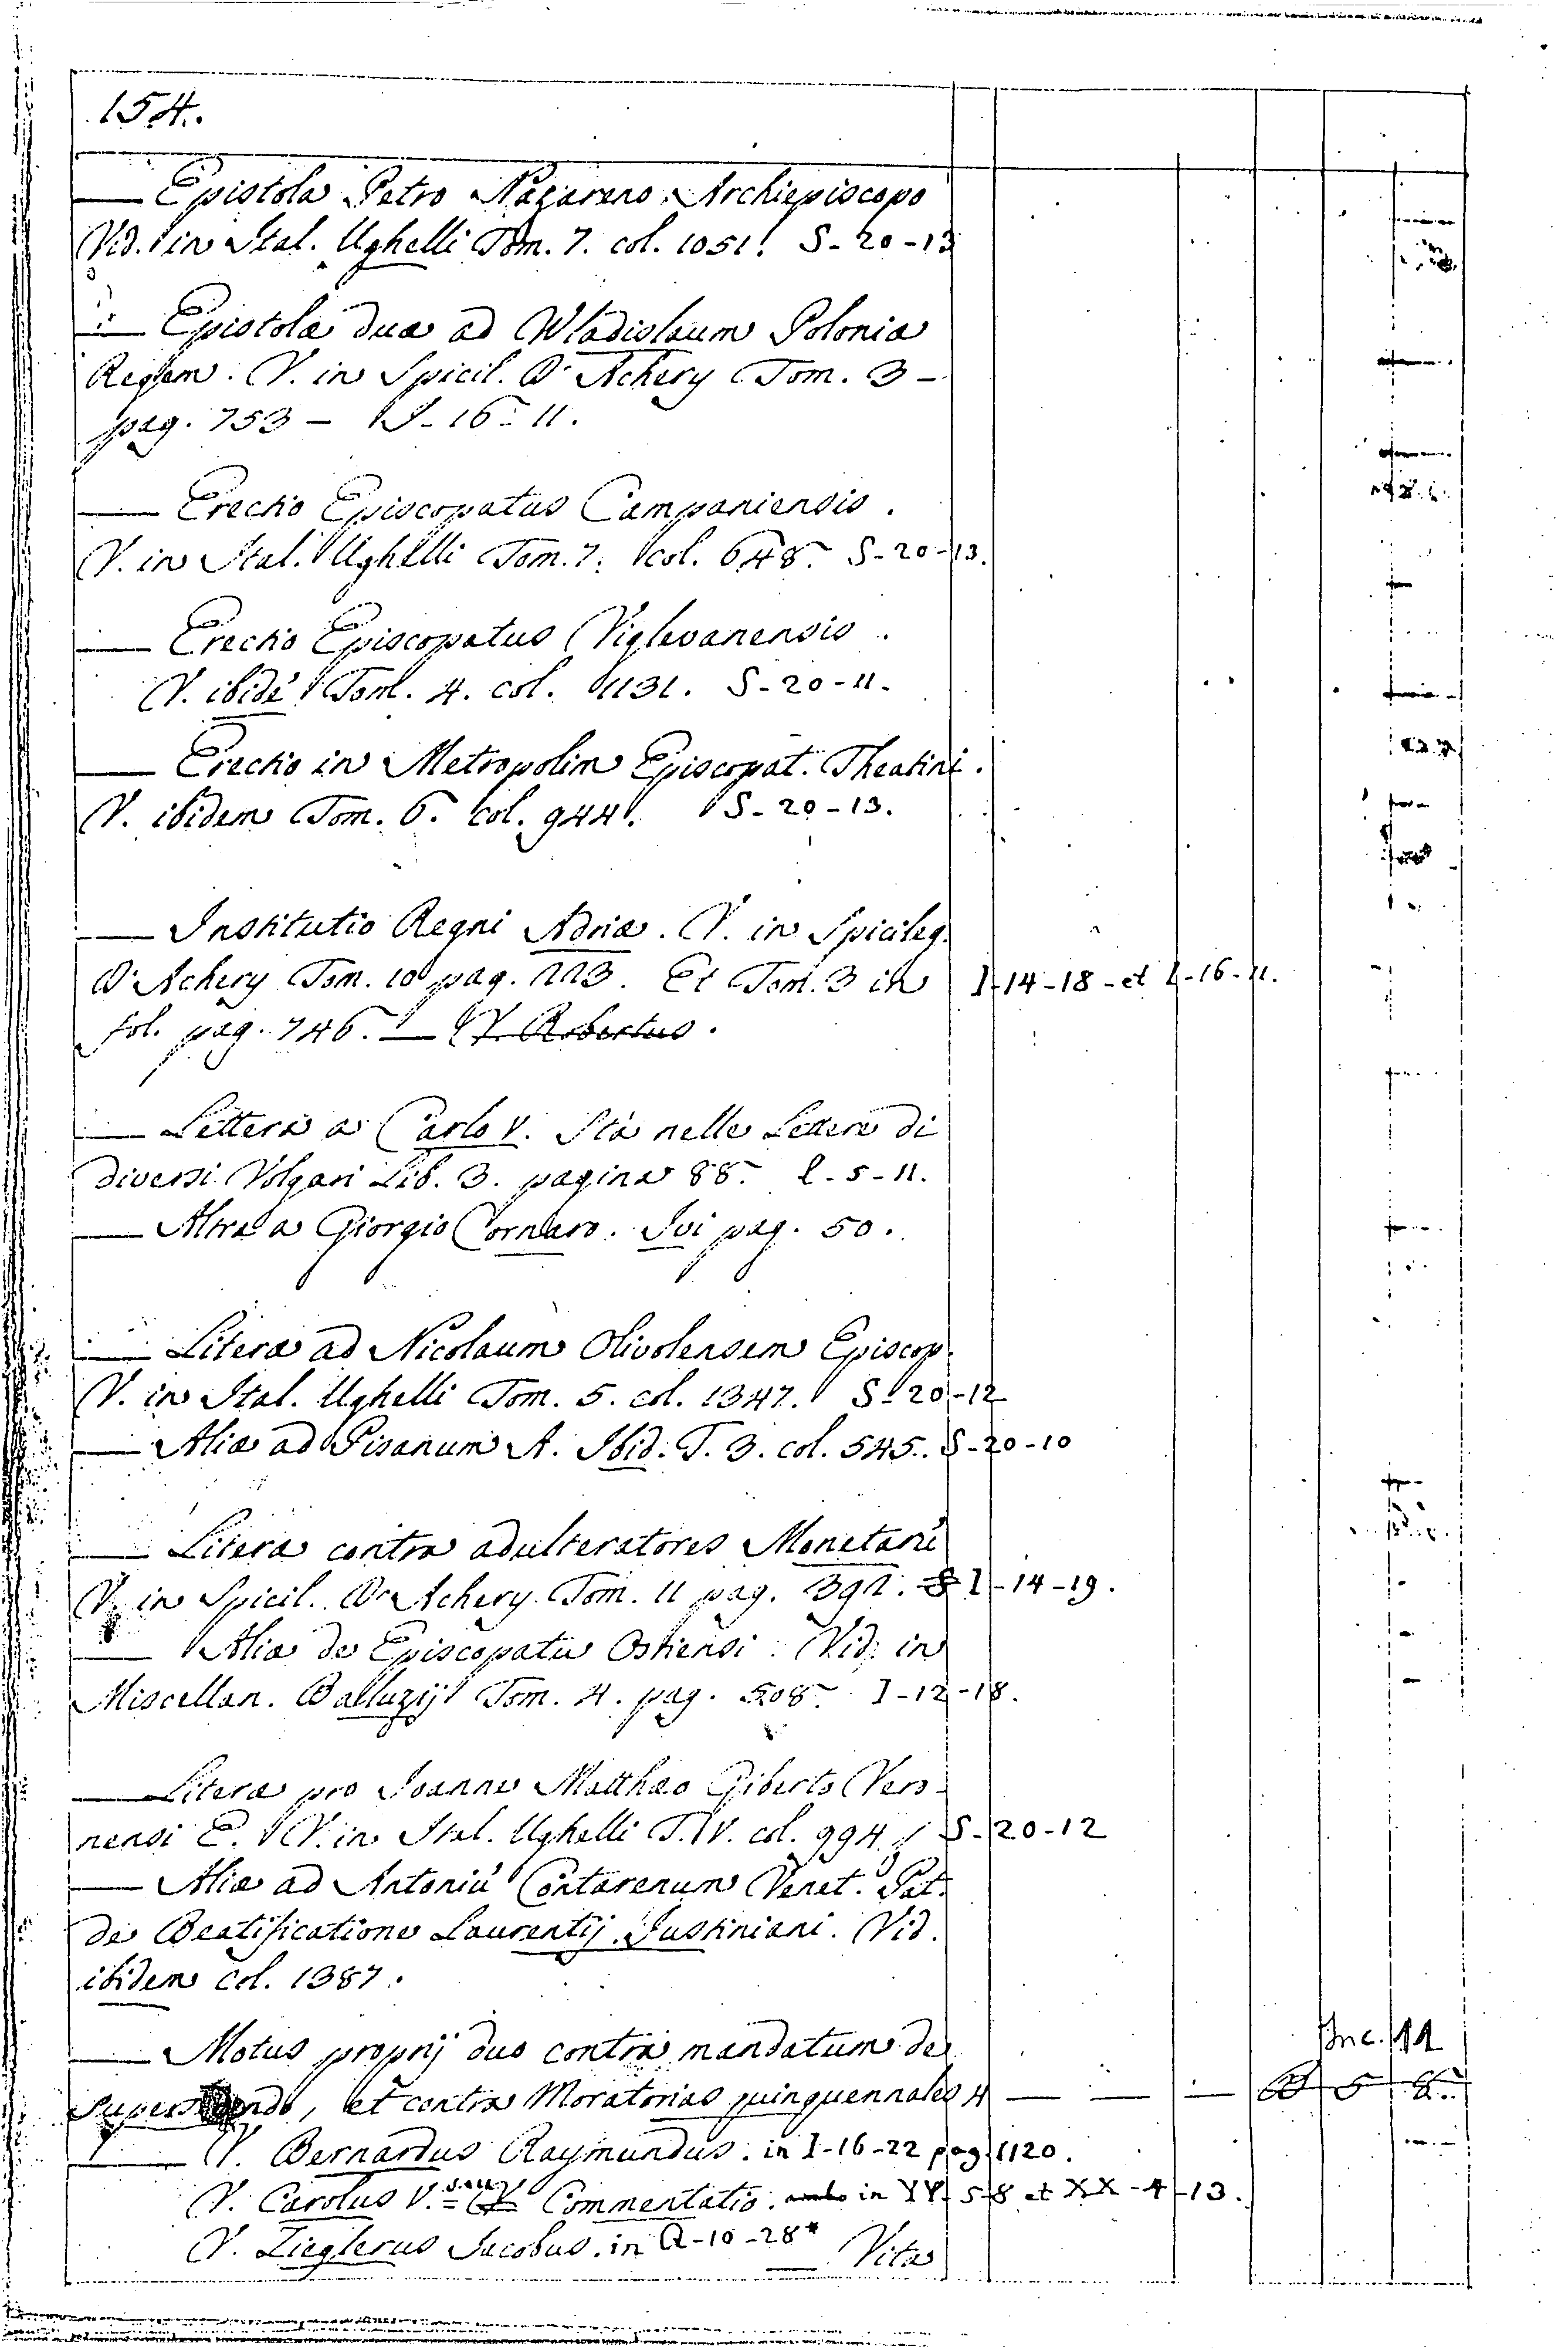 154.
— Epistola Petro Nazareno Archiepiscopo
Vid. in Ital. Ughelli Tom. 7. col. 1051. S-20-13
— Epistolæ duæ ad Wladislaum Poloniæ
Regem. V. in Spicil. D'Achery Tom. 3 -
pag. 753 - I-16-11.
— Erectio Episcopatus Campaniensis.
V. in Ital. Ughelli Tom. 7. col. 648. S-20-13.
— Erectio Episcopatus Viglevanensis.
V. ibidē Tom. 4. col. 1131. S-20-11.
— Erectio in Metropolim Episcopat. Theatini.
V. ibidem Tom. 6. col. 944. S-20-13.
— Institutio Regni Adriæ. V. in Spicileg.
D'Achery Tom. 10 pag. 223. Et Tom. 3 in I-14-18 - et I-16-11.
fol. pag. 746. — V. Robertus.
— Lettera a Carlo V. Sta nelle Lettere di
diversi Volgari Lib. 3. pagina 88. l-5-11.
— Altra a Giorgio Cornaro. Ivi pag. 50.
— Literæ ad Nicolaum Olivolensem Episcop.
V. in Ital. Ughelli Tom. 5. col. 1347. S-20-12
— Aliæ ad Pisanum A. Ibid. T. 3. col. 545. S-20-10
— Literæ contra adulteratores Monetarū
V. in Spicil. D'Achery Tom. 11 pag. 392. I-14-19.
— Aliæ de Episcopatu Ostiensi. Vid. in
Miscellan. Balluzij Tom. 4. pag. 508. I-12-18.
— Literæ pro Joanne Matthæo Giberto Vero-
nensi E. V. in Ital. Ughelli T. IV. col. 994. S-20-12
— Aliæ ad Antoniū Contarenum Venet. Pat.
de Beatificatione Laurentij Justiniani. Vid.
ibidem col. 1387.
— Motus proprij duo contra mandatum de Inc. 11
, et contra Moratorias quinquennales 4 — — — B 5
— V. Bernardus Raymundus. in I-16-22 pag. 1120.
V. Carolus V. = Commentatio. in YY-5-8 et XX-4-13.
V. Zieglerus Jacobus. in Q-10-28*
Vitæ